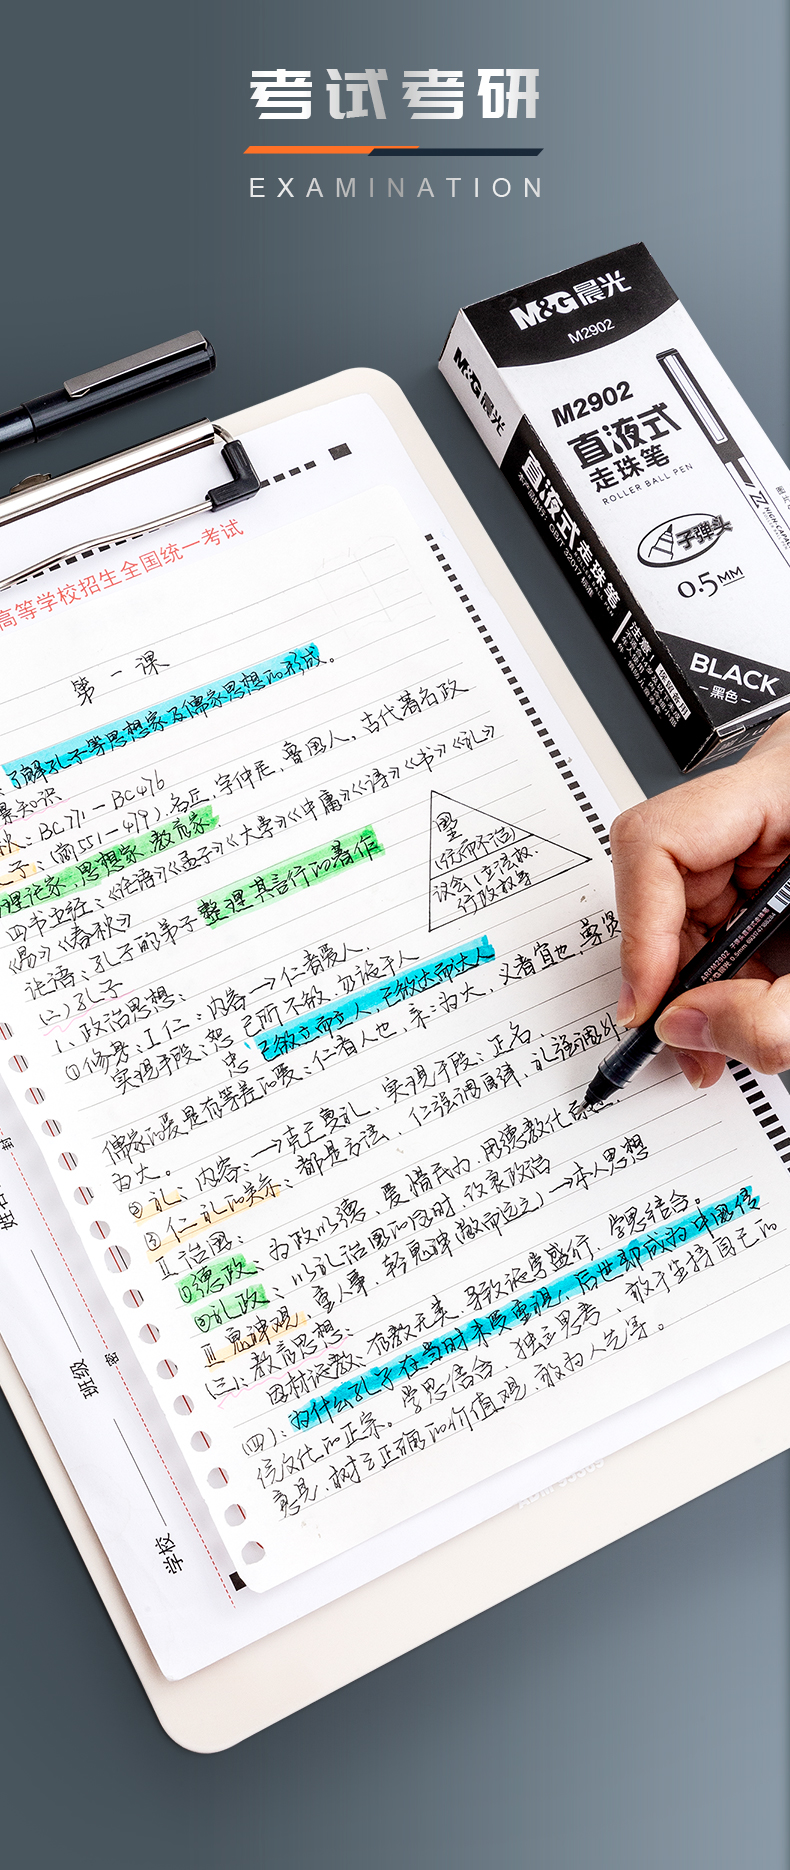 考试考研
EXAMINATION
M&G晨光
M2902
M&G晨光
M2902
直液式
走珠笔
ROLLER BALL PEN
子弹头
0.5MM
BLACK
黑色
直液式走珠笔
ROLLER BALL PEN
GB/T 32017
注意
高等学校招生全国统一考试
第一课
了解孔子等思想家及儒家思想的形成。
景知识
BC771-BC476
551-479).名丘,字仲尼,鲁国人。古代著名政
理论家、思想家、教育家
四书五经:《论语》《孟子》《大学》《中庸》《诗》《书》《礼》
《易》《春秋》
论语:孔子的弟子整理其言行的著作
议会(立法权、
行政权等
(二)孔子
1、政治思想:
①修身:工仁:内容→仁者爱人.
实现手段:恕 己所不欲,勿施于人
忠:己欲立而立人,己欲达而达人
仁者人也,亲亲为大,义者宜也,尊贤
为大。
儒家的爱是有等差的爱
②礼:内容:→克己复礼,实现手段:正名,
③仁礼的关系:都是方法,仁强调自律,礼强调外
Ⅱ治国:
①德政:为政以德,爱惜民力,用德教化百姓.
②礼政:以礼治国的同时,改良政治
Ⅲ鬼神观,重人事,轻鬼神(敬而远之)→本人思想
(三).教育思想:
因材施教:有教无类,导致私学盛行,学思结合。
(四):为什么孔子在当时未受重视,后世却成为中国传
统文化的正宗。学思结合,独立思考,敢于坚持自己的
意见,树立正确的价值观,敢为人先等。
姓名
封
班级
密
学校
ARPM2902 子弹头直液式走珠笔